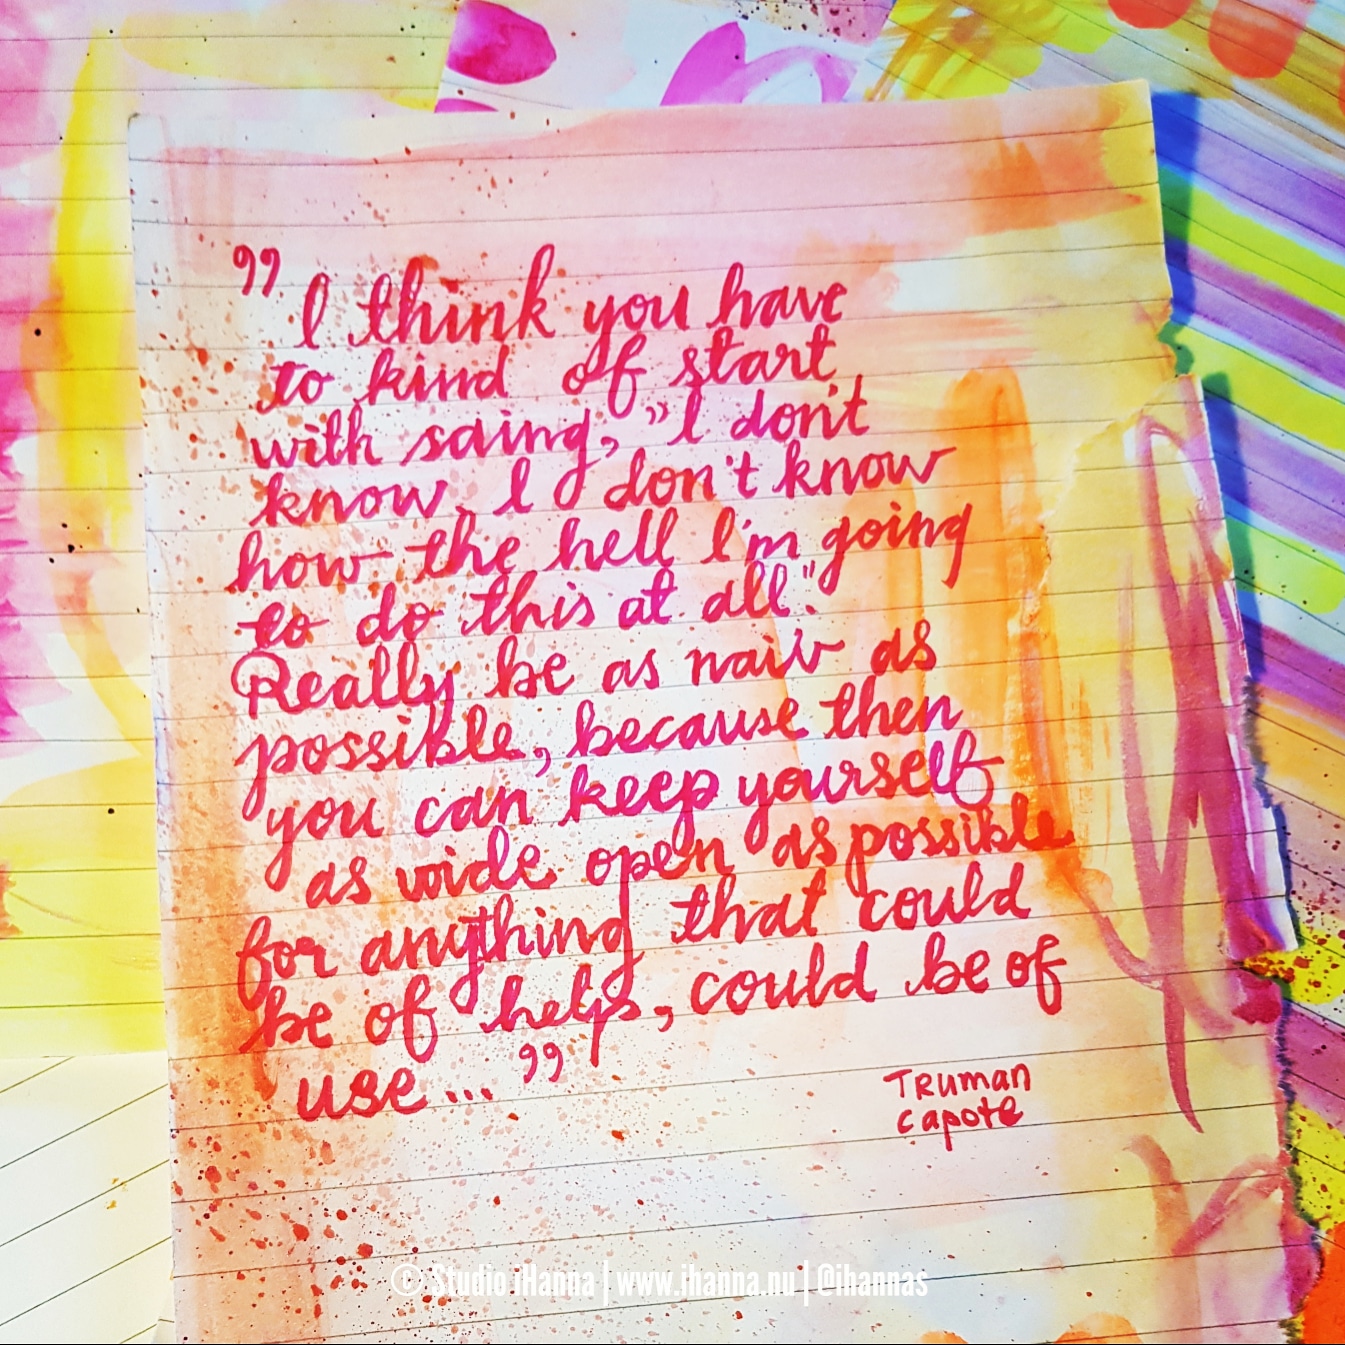 " I think you have
to kind of start
with saing, "I don't
know, I don't know
how the hell I'm going
to do this at all."
Really be as naiv as
possible, because then
you can keep yourself
as wide open as possible
for anything that could
be of helps, could be of
use... "
Truman
Capote
© Studio iHanna | www.ihanna.nu | @ihannas